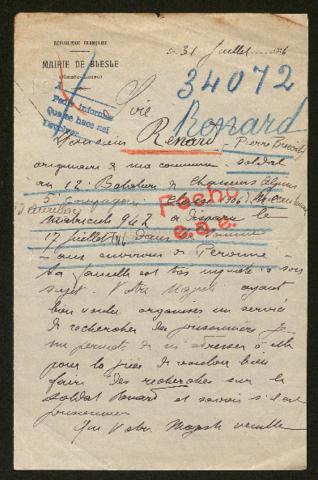 RÉPUBLIQUE FRANÇAISE
MAIRIE DE BLESLE
(Haute-Loire)
31 Juillet
34072
Pedir informes
Que se hace así
Sire
Renard
Monsieur Renard Pierre
originaire de ma commune soldat
au 12e Bataillon de Chasseurs Alpins
5e Compagnie
Matricule 942 a disparu le
Fecho
e.a.e.
17 Juillet 1916 dans la Somme
aux environs de Peronne
Sa famille est très inquiète à son
sujet. Votre Majesté ayant
bien voulu organiser un service
de recherches des prisonniers je
me permets de m'adresser à elle
pour la prier de vouloir bien
faire des recherches sur le
soldat Renard et savoir s'il est
prisonnier
Que Votre Majesté veuille